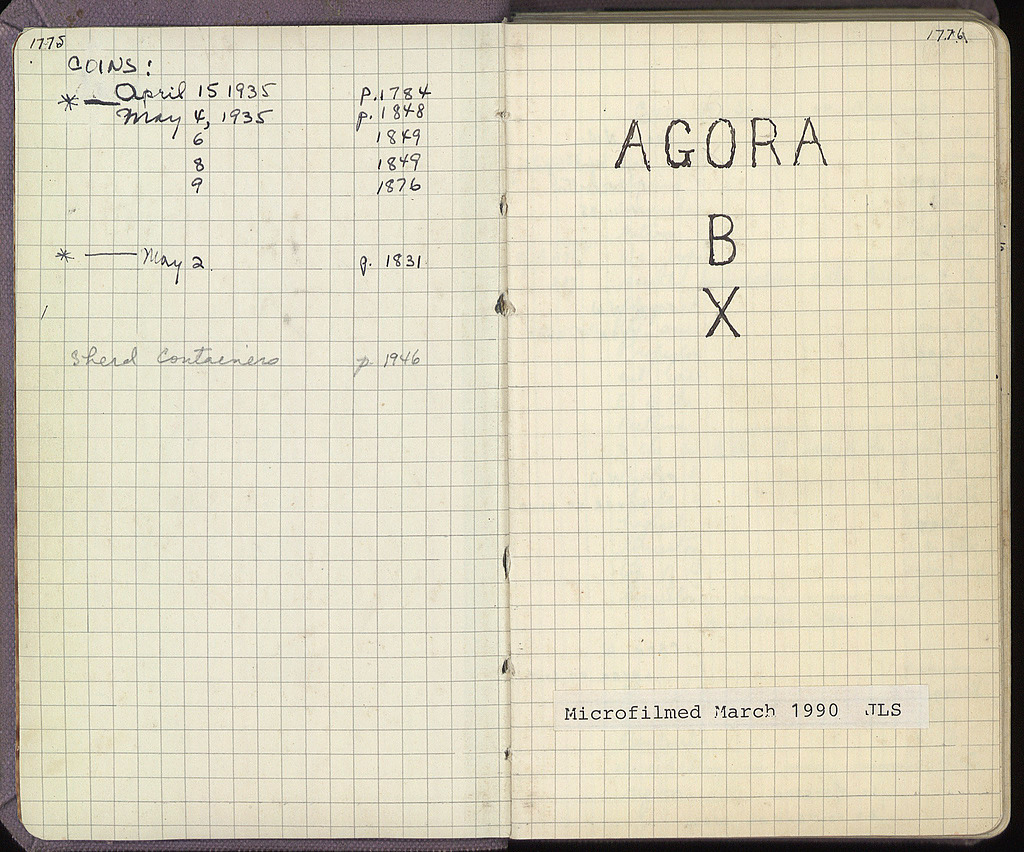 1775
COINS:
* — April 15 1935 p.1784
May 4, 1935 p.1848
6 1849
8 1849
9 1876
* — May 2. p. 1831
Sherd Containers p. 1946
1776
AGORA
B
X
Microfilmed March 1990 JLS